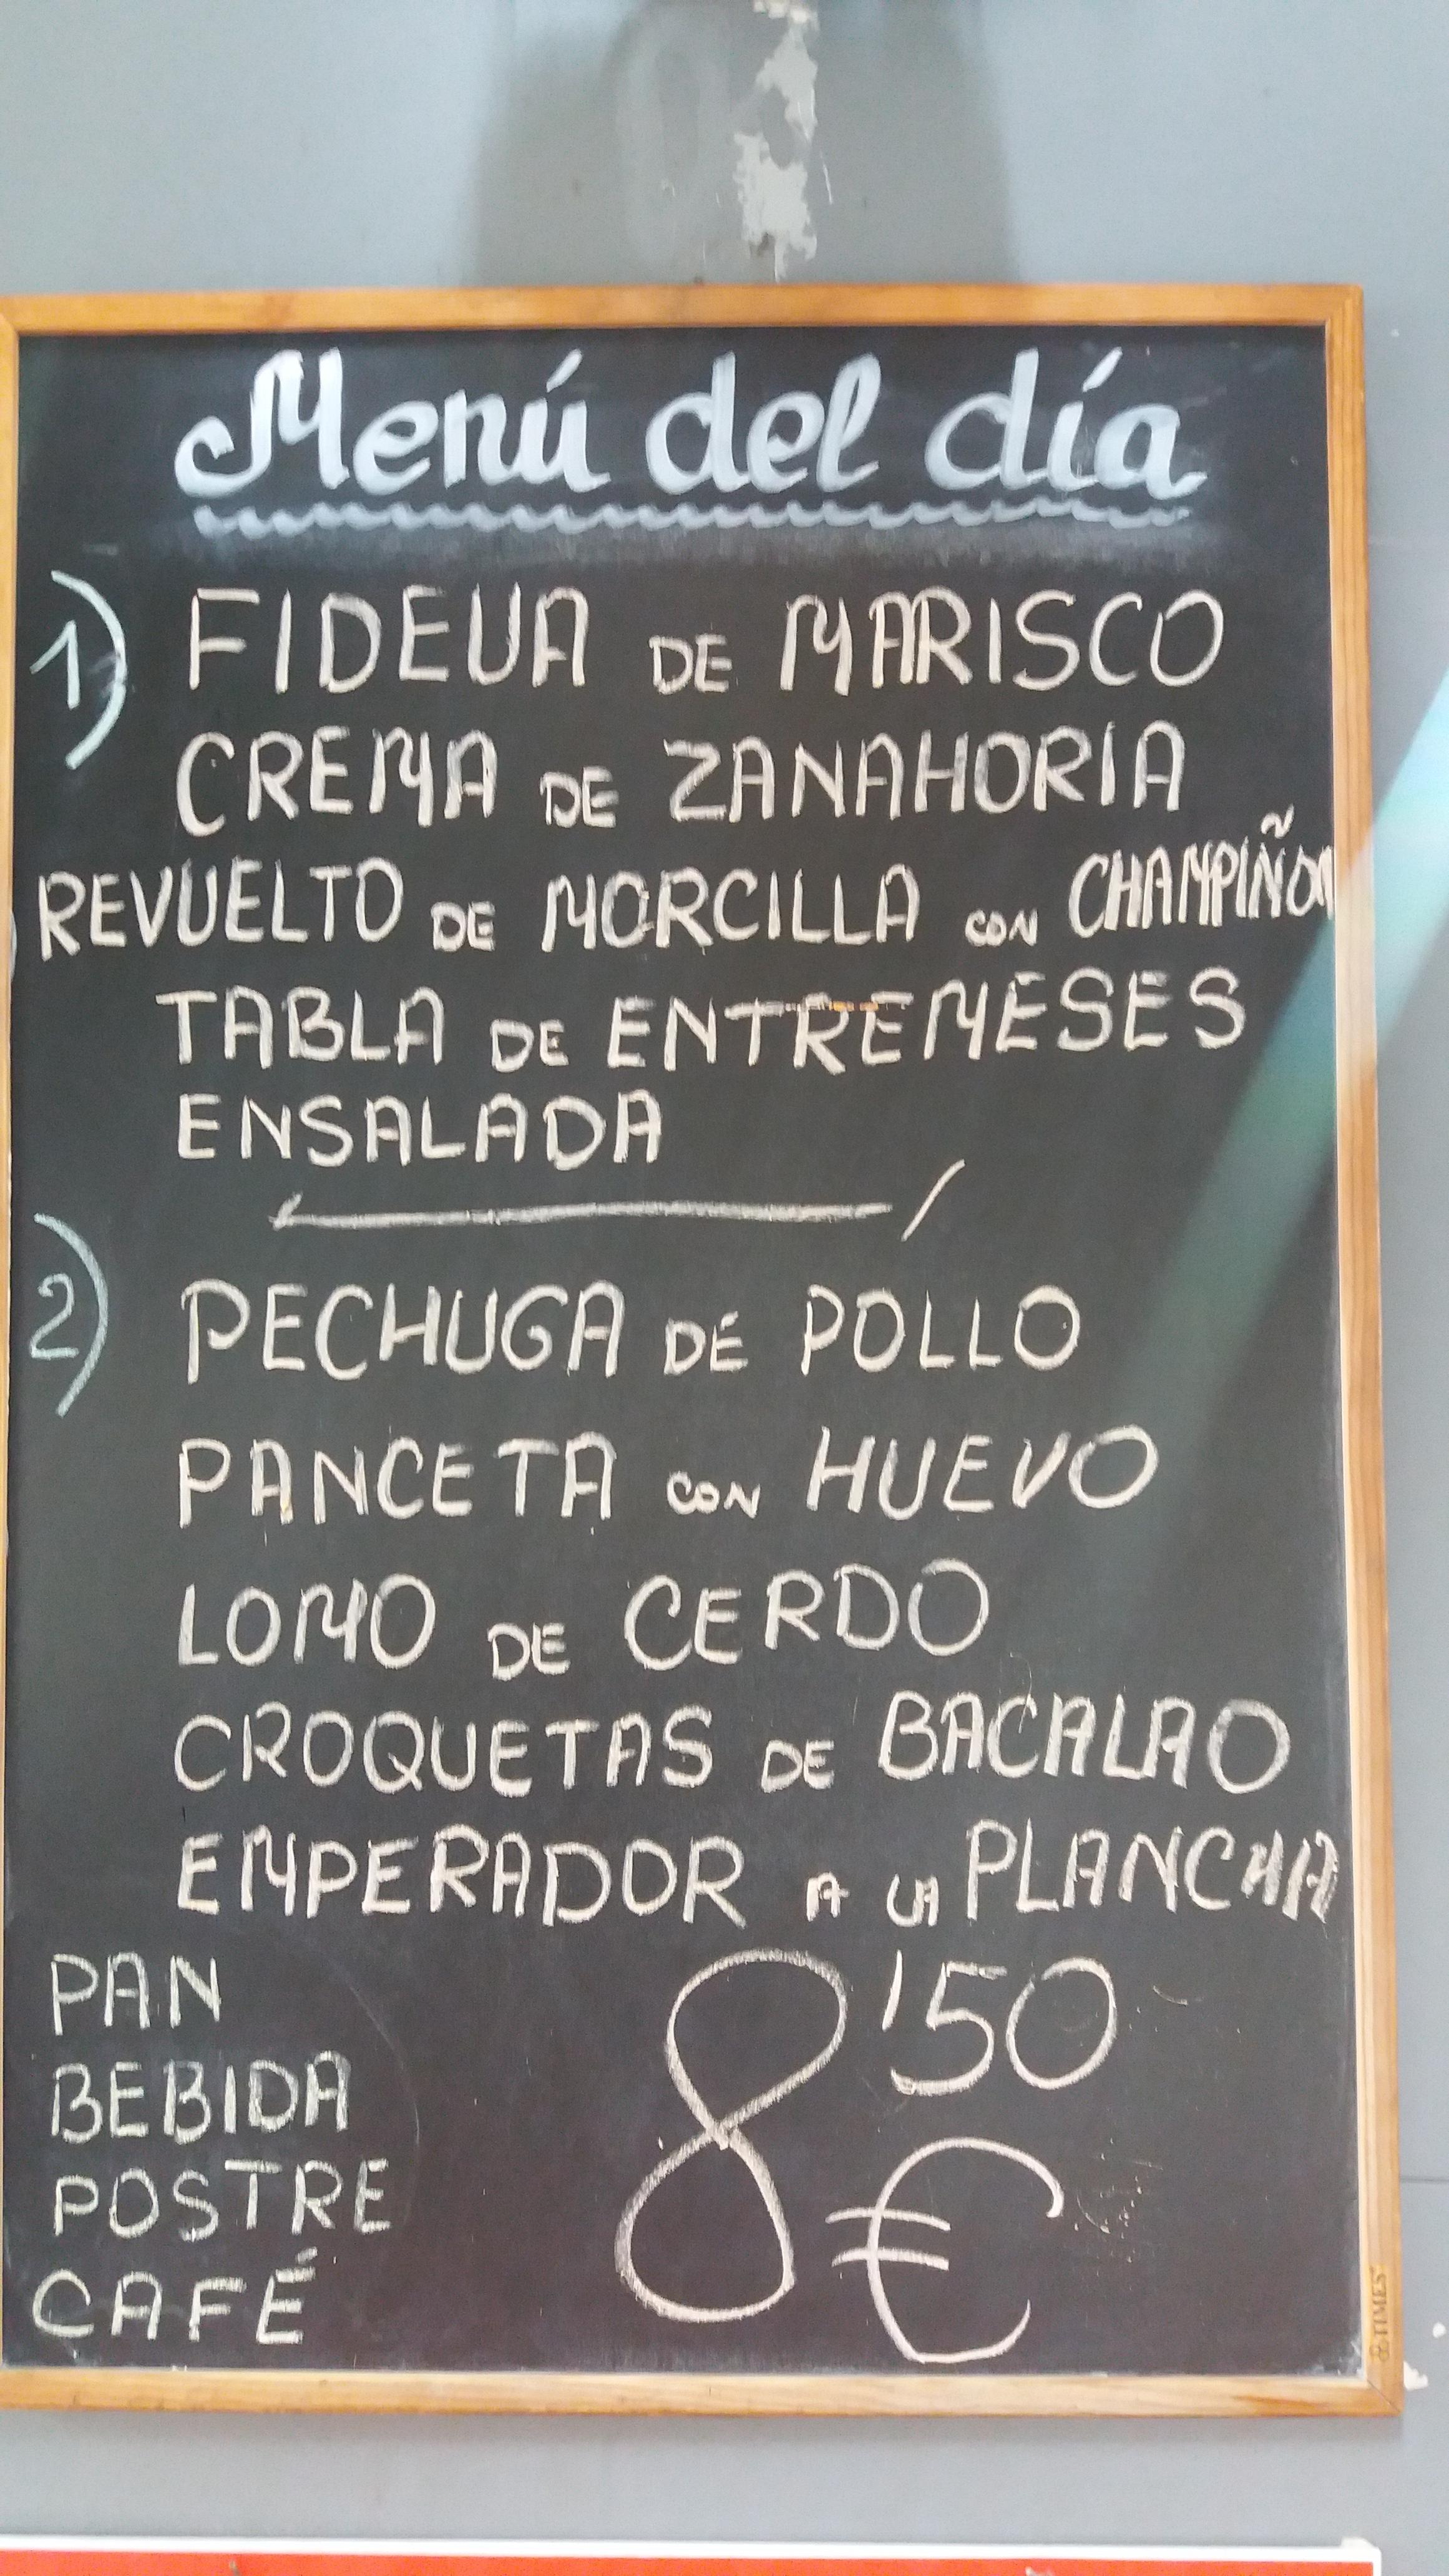 Menú del día
1) FIDEUA DE MARISCO
CREMA DE ZANAHORIA
REVUELTO DE MORCILLA CON CHAMPIÑON
TABLA DE ENTREMESES
ENSALADA
2) PECHUGA DE POLLO
PANCETA CON HUEVO
LOMO DE CERDO
CROQUETAS DE BACALAO
EMPERADOR A LA PLANCHA
PAN
BEBIDA
POSTRE
CAFÉ
8'50 €
TIMES